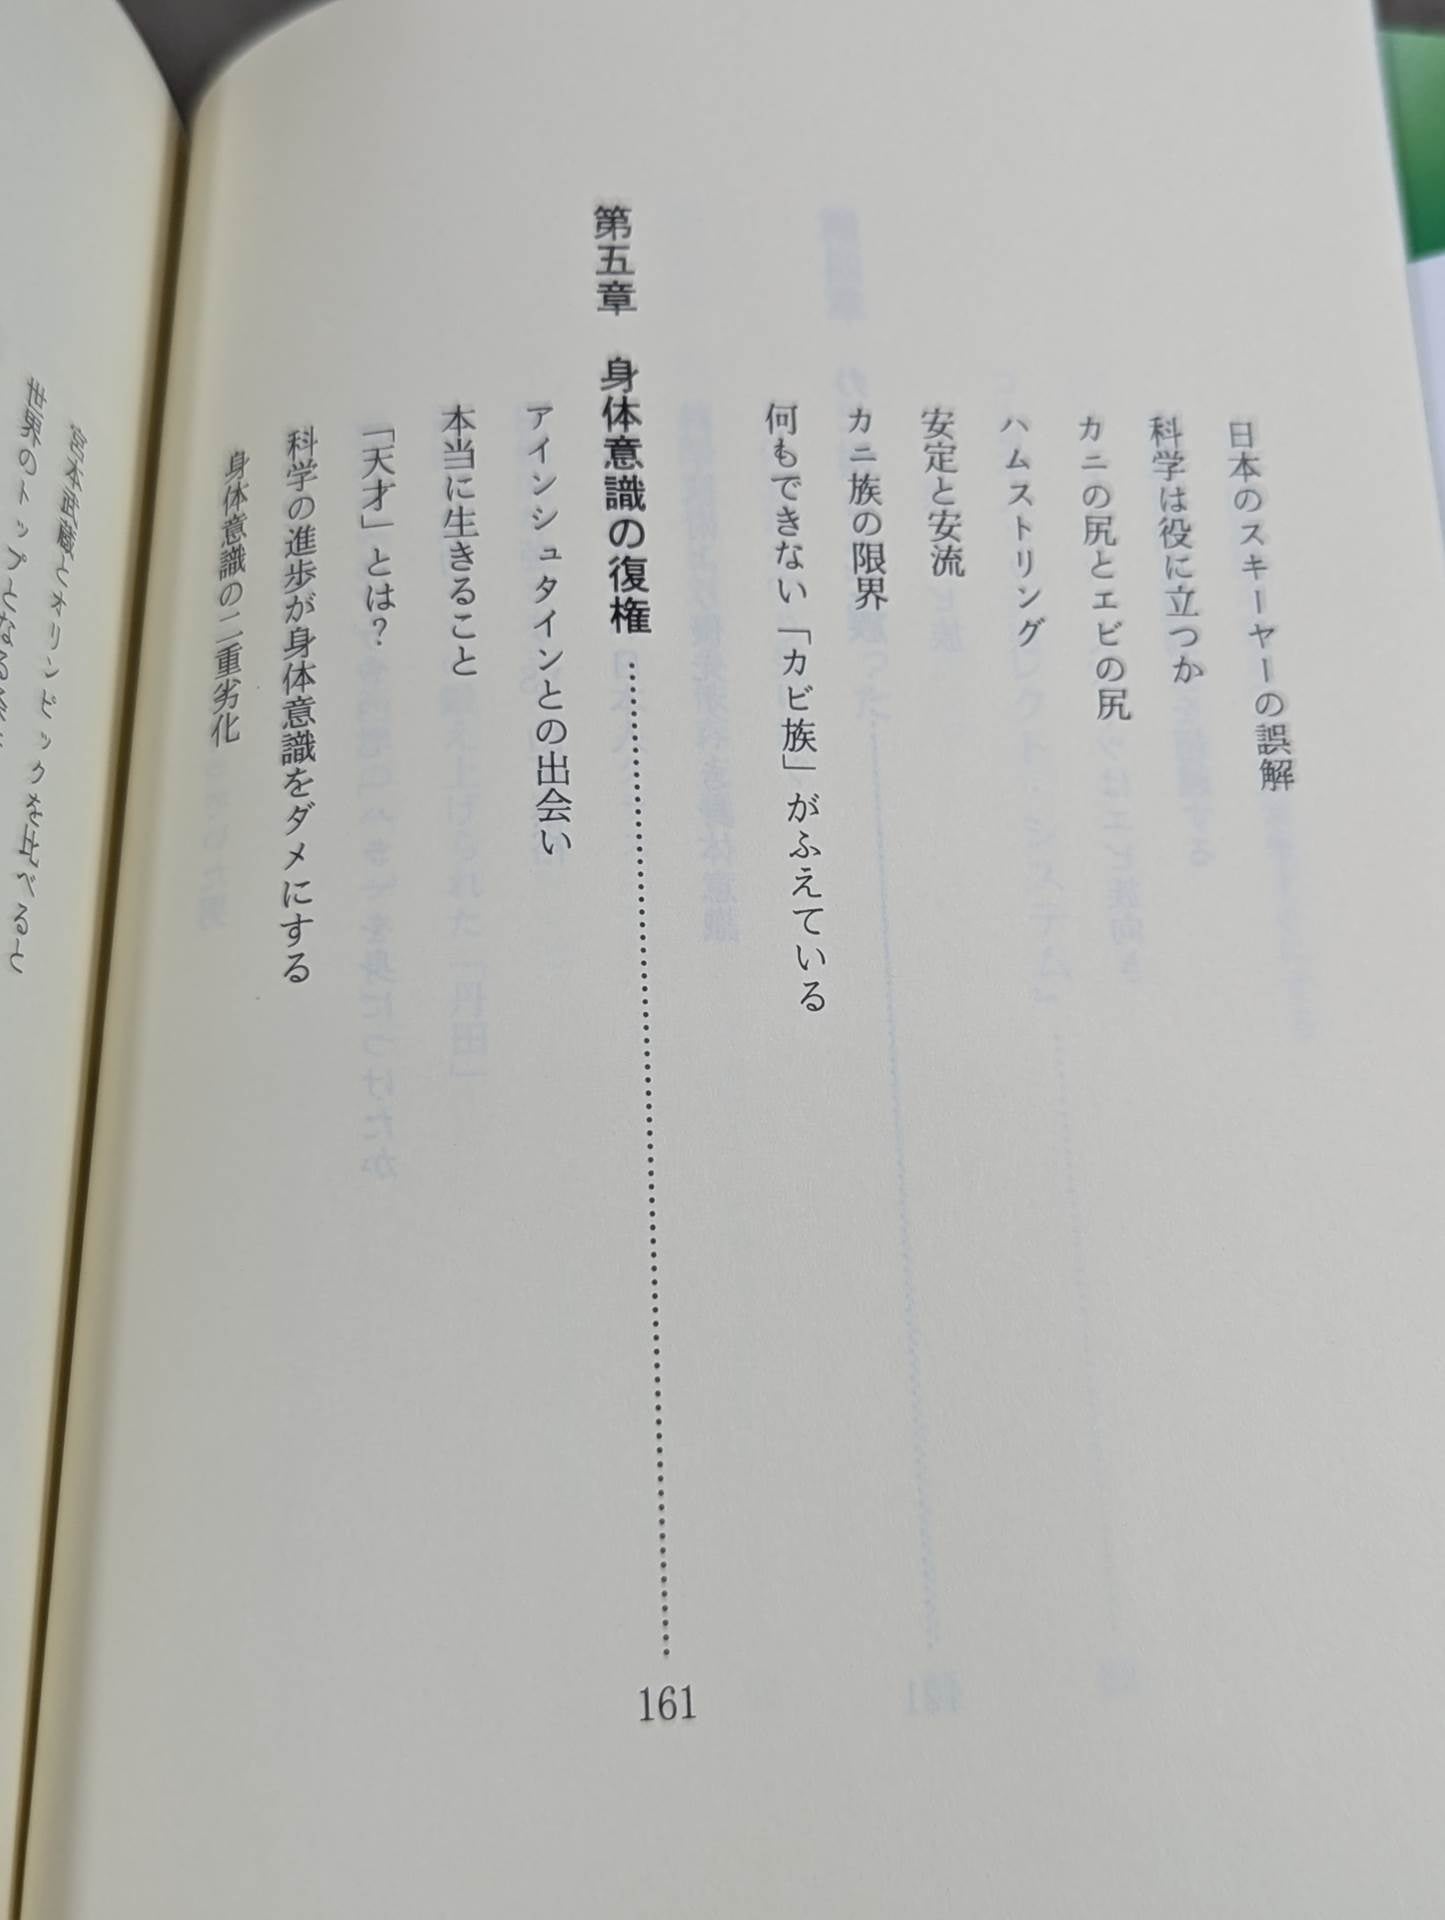 日本のスキーヤーの誤解
科学は役に立つか
カニの尻とエビの尻
ハムストリング
安定と安流
カニ族の限界
何もできない「カビ族」がふえている
第五章　身体意識の復権……………………………………161
アインシュタインとの出会い
本当に生きること
「天才」とは？
科学の進歩が身体意識をダメにする
身体意識の二重劣化
宮本武蔵とオリンピックを比べると
世界のトップとなる